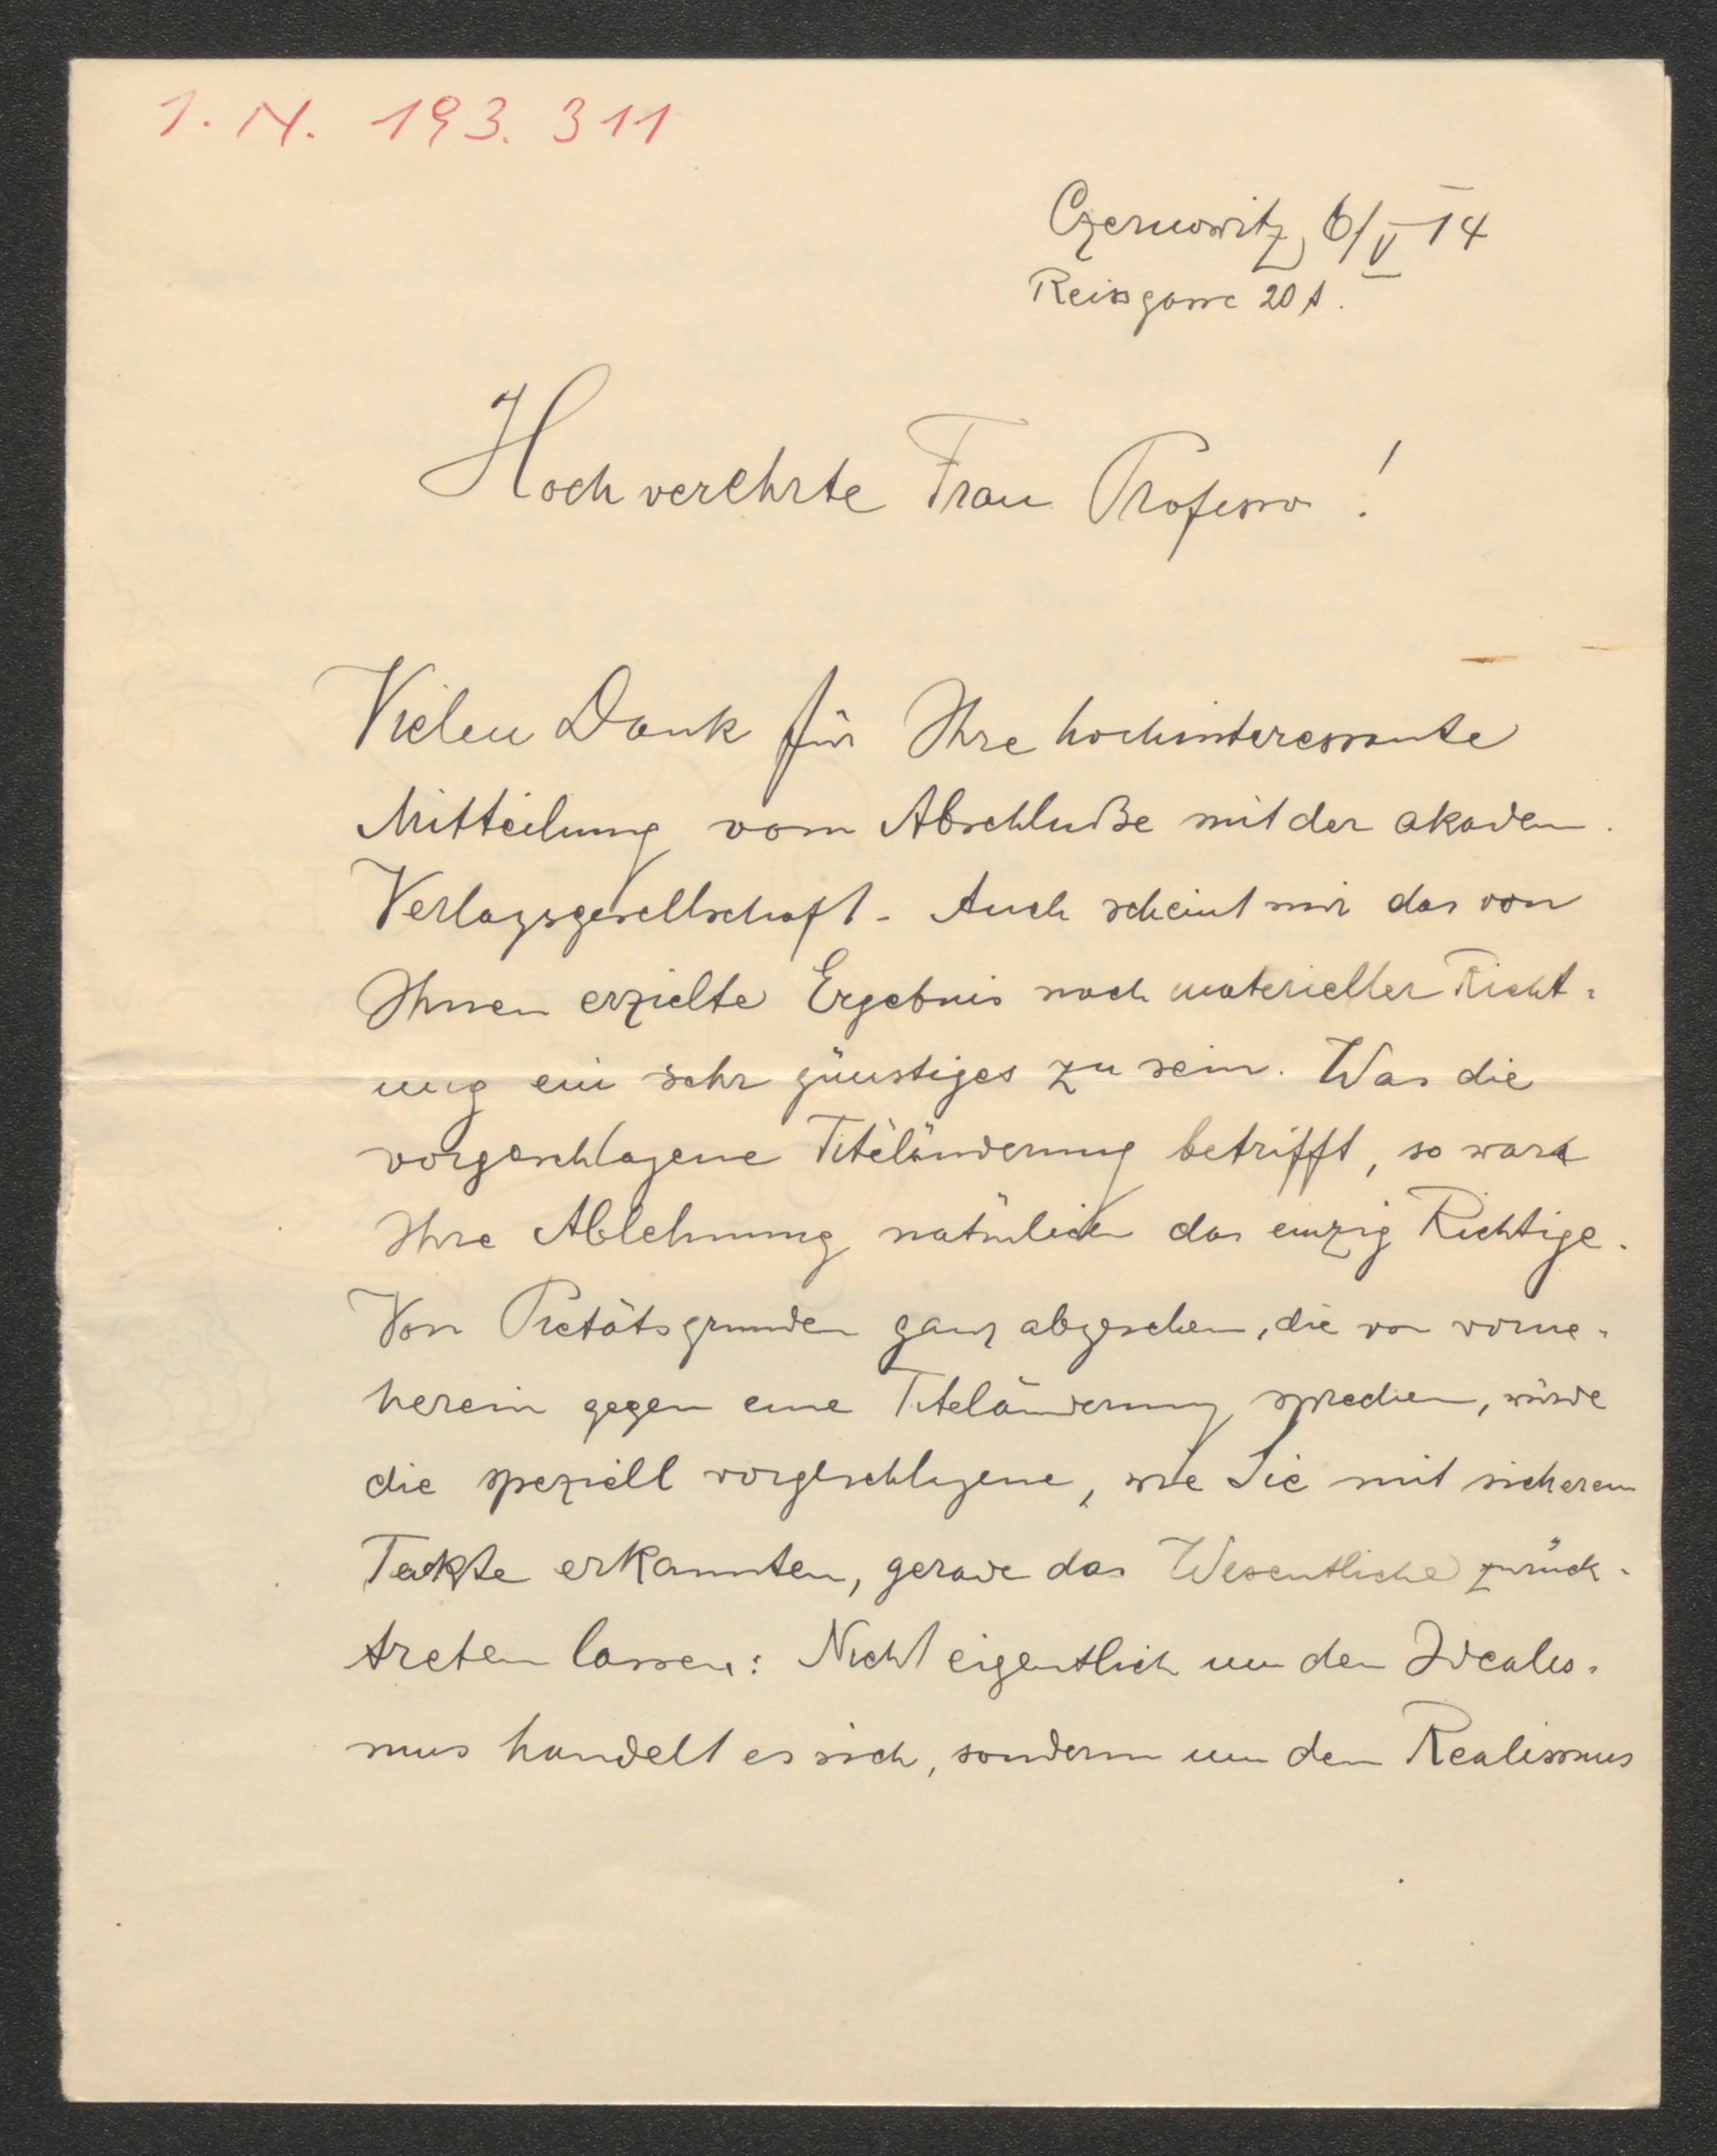 I. N. 193.311
Czernowitz, 6/V 14
Reissgasse 20 A.
Hochverehrte Frau Professor!
Vielen Dank für Ihre hochinteressante
Mitteilung vom Abschluße mit der akadem.
Verlagsgesellschaft. Auch scheint mir das von
Ihnen erzielte Ergebnis nach materieller Richt-
ung ein sehr günstiges zu sein. Was die
vorgeschlagene Titeländerung betrifft, so war
Ihre Ablehnung natürlich das einzig Richtige.
Von Pietätsgründen ganz abgesehen, die von vorne-
herein gegen eine Titeländerung sprechen, würde
die speziell vorgeschlagene, wie Sie mit sicherem
Takte erkannten, gerade das Wesentliche zurück-
treten lassen: Nicht eigentlich um den Idealis-
mus handelt es sich, sondern um den Realismus